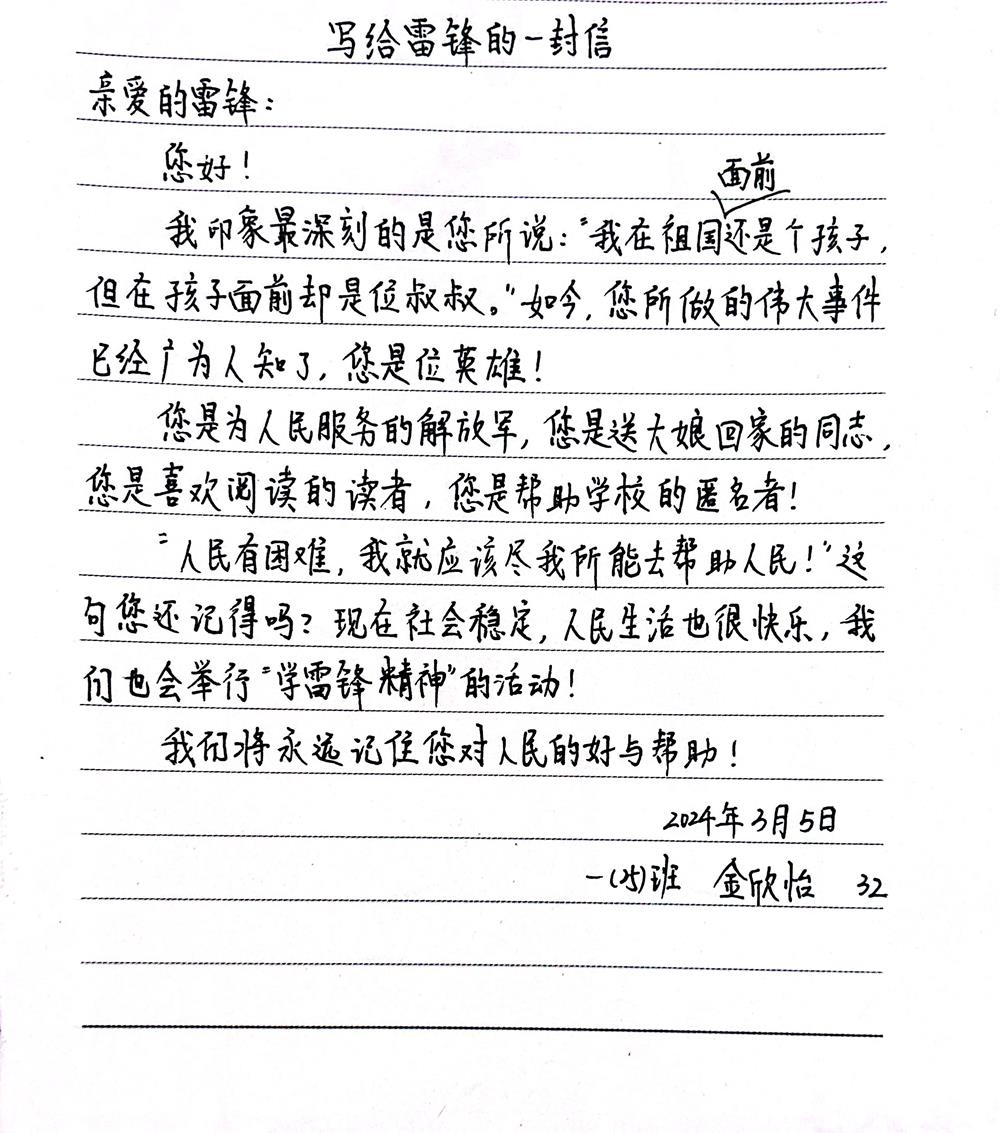 写给雷锋的一封信
亲爱的雷锋：
您好！
面前
我印象最深刻的是您所说：“我在祖国还是个孩子，
但在孩子面前却是位叔叔。”如今，您所做的伟大事件
已经广为人知了，您是位英雄！
您是为人民服务的解放军，您是送大娘回家的同志，
您是喜欢阅读的读者，您是帮助学校的匿名者！
“人民有困难，我就应该尽我所能去帮助人民！”这
句您还记得吗？现在社会稳定，人民生活也很快乐，我
们也会举行“学雷锋精神”的活动！
我们将永远记住您对人民的好与帮助！
2024年3月5日
一(25)班 金欣怡 32